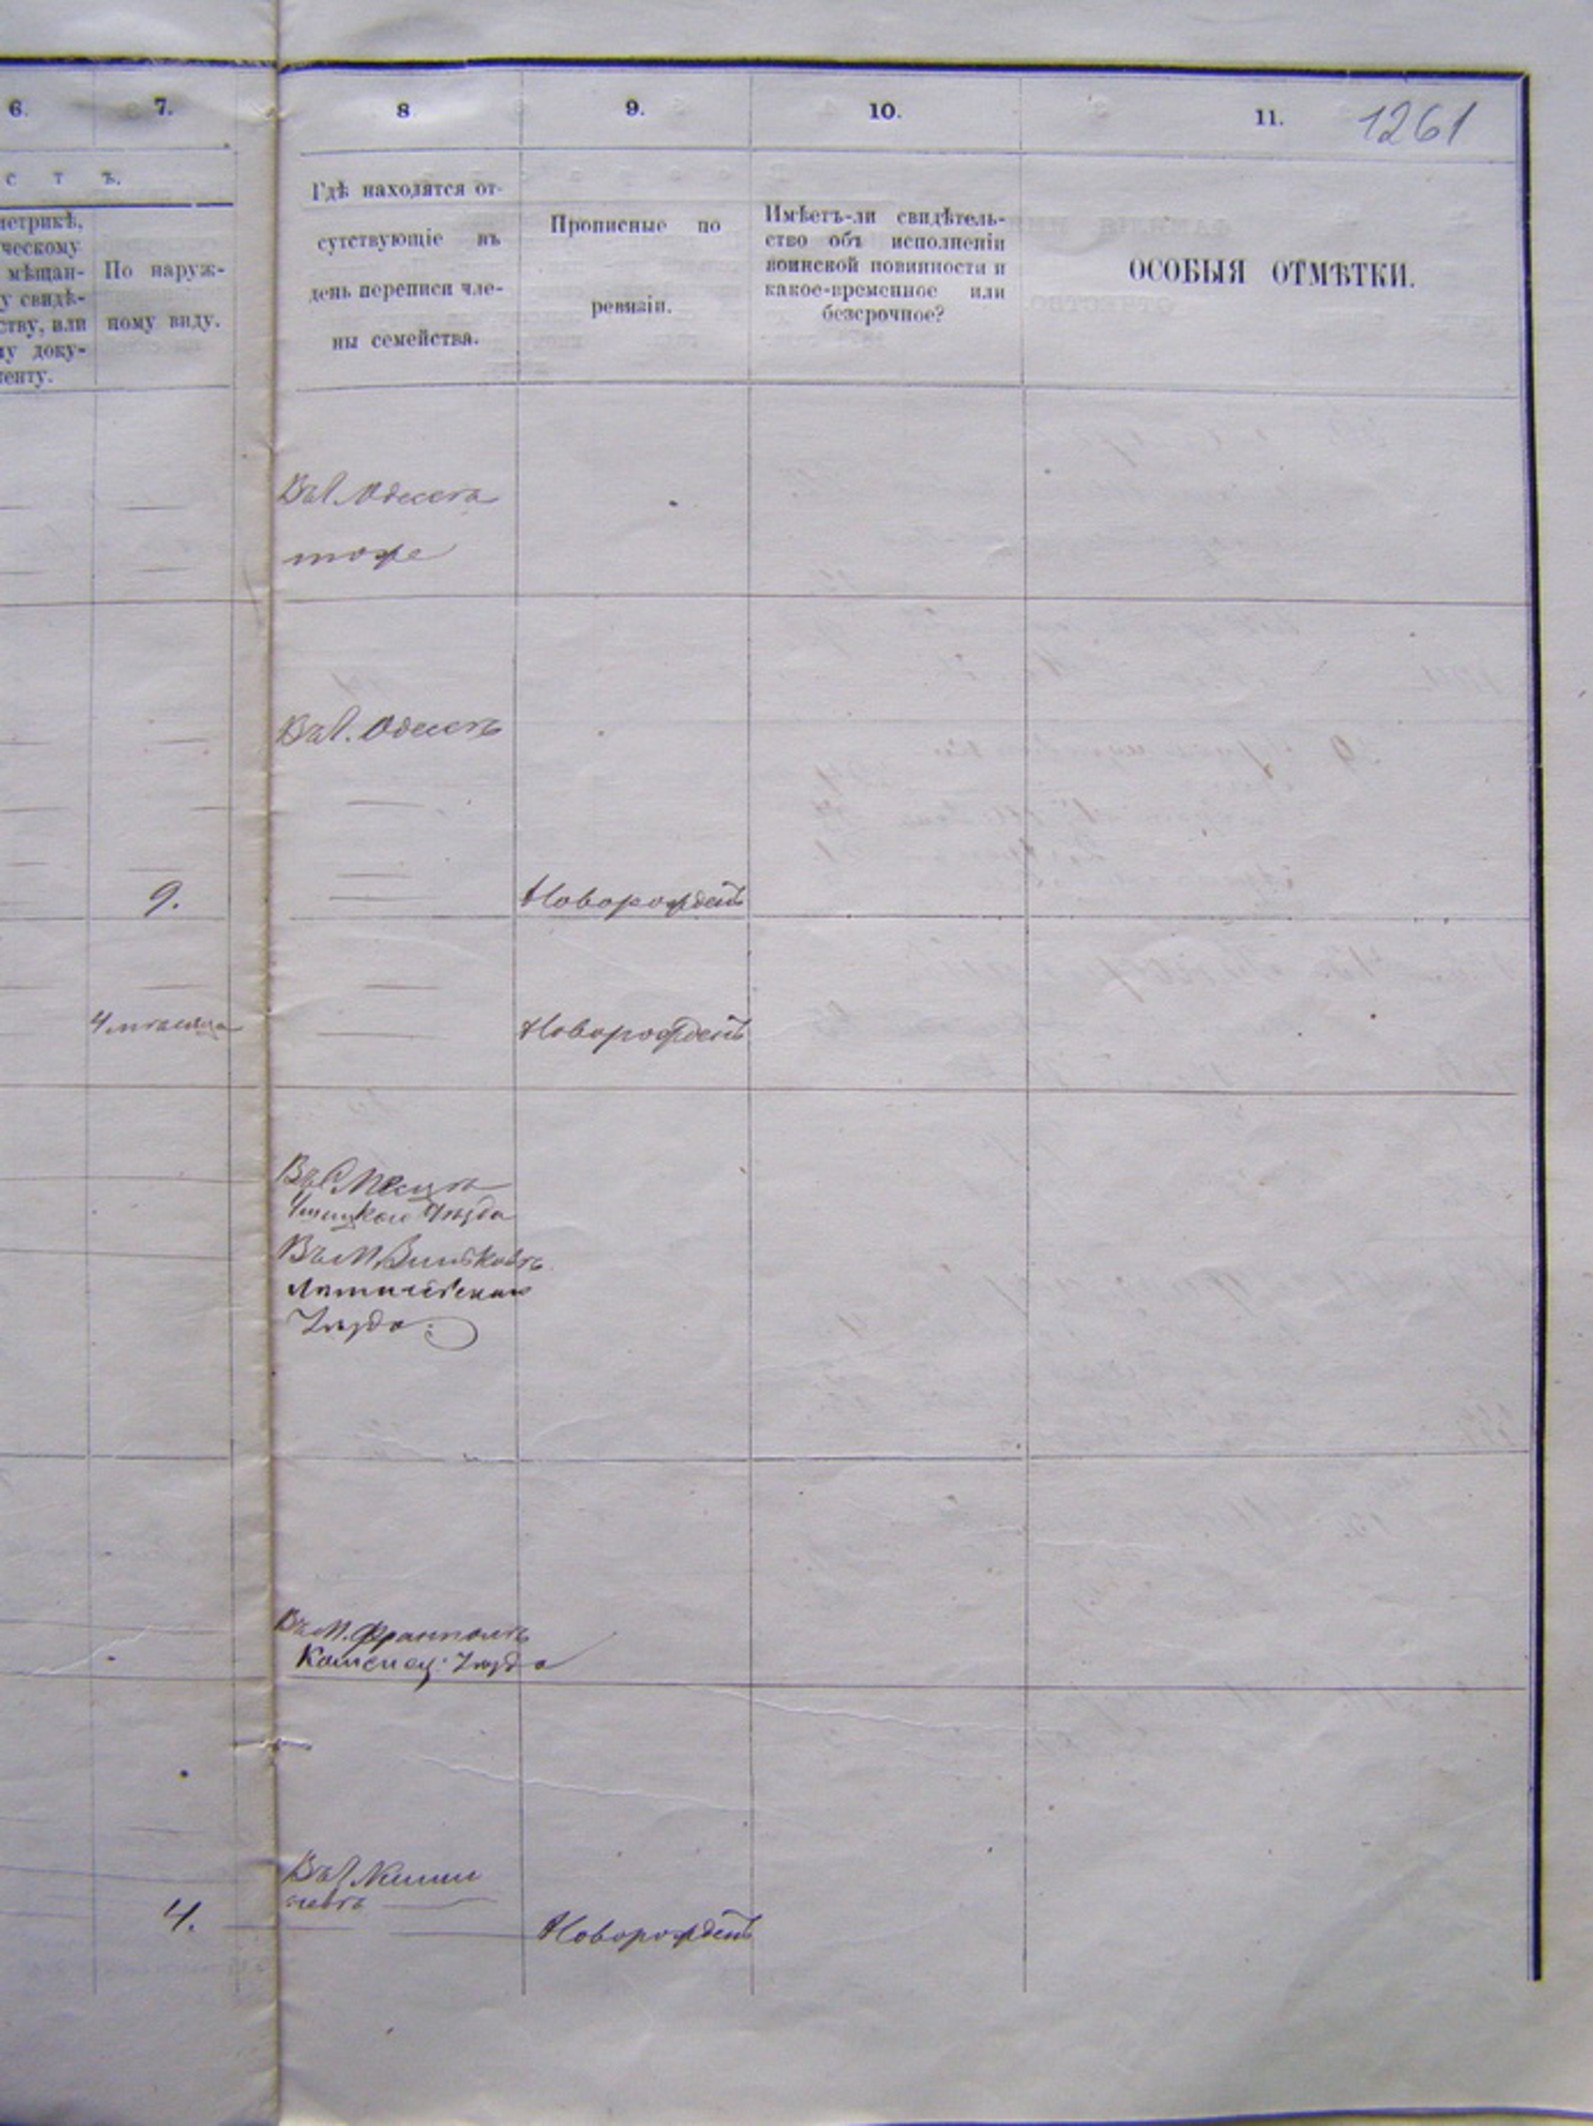 6.
7.
8
9.
10.
11.
1261
с т ъ.
метрикѣ,
ческому
мѣщан-
у свидѣ-
ству, или
му доку-
менту.
По наруж-
ному виду.
Гдѣ находятся от-
сутствующіе въ
день переписи чле-
ны семейства.
Прописные по
ревизіи.
Имѣетъ-ли свидѣтель-
ство объ исполненіи
воинской повинности и
какое-временное или
безсрочное?
ОСОБЫЯ ОТМѢТКИ.
Въ г. Одессѣ
тоже
Въ г. Одессѣ
9.
Новорожден
4 мѣсяца
Новорожден
Въ с.
Ушицкаго Уѣзда
Въ м.
Летичевскаго
Уѣзда.
Въ м. Фрамполѣ
Каменец: Уѣзда
Въ г. Киши
невѣ
4.
Новорожден